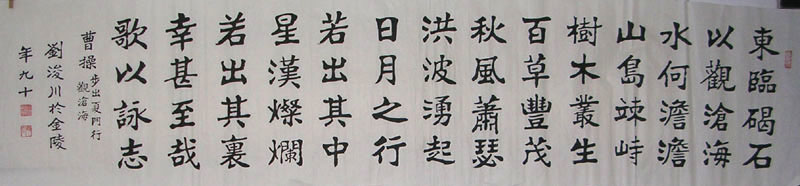 東臨碣石
以觀滄海
水何澹澹
山島竦峙
樹木叢生
百草豐茂
秋風蕭瑟
洪波湧起
日月之行
若出其中
星漢燦爛
若出其裏
幸甚至哉
歌以詠志
曹操步出夏門行
觀滄海
劉浚川於金陵
年九十